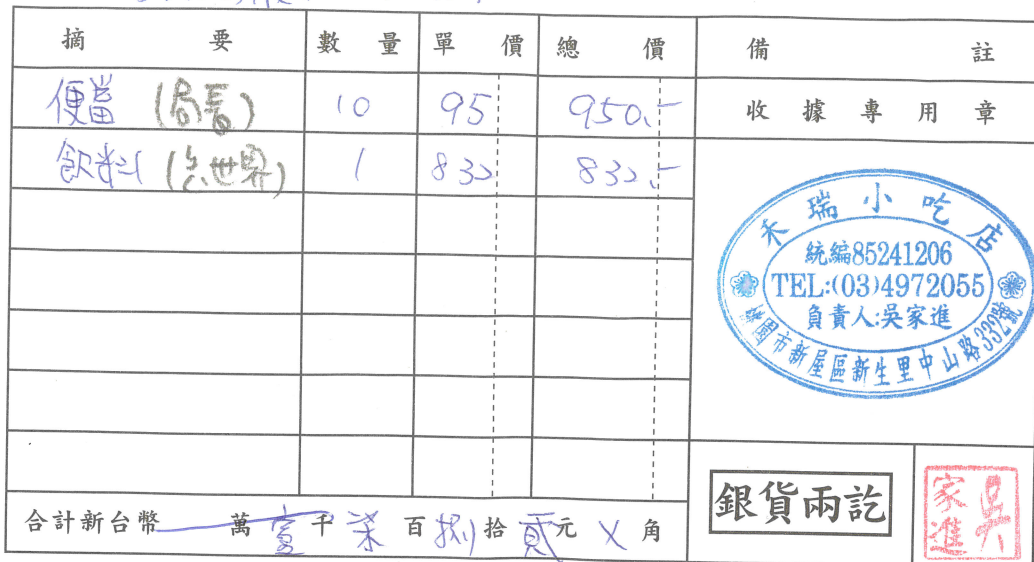 摘要 數量 單價 總價 備註
便當 (局長) 10 95 950.-
收據專用章
飲料 (含世界) 1 832 832.-
禾瑞小吃店
統編85241206
TEL:(03)4972055
負責人:吳家進
桃園市新屋區新生里中山路332號
銀貨兩訖
吳家進
合計新台幣 萬壹千柒百捌拾貳元X角